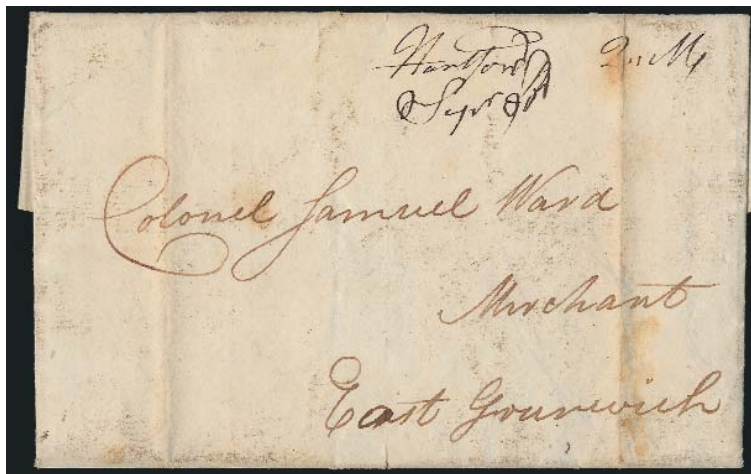 Hartford
Sepr
Colonel Samuel Ward
Merchant
East Greenwich